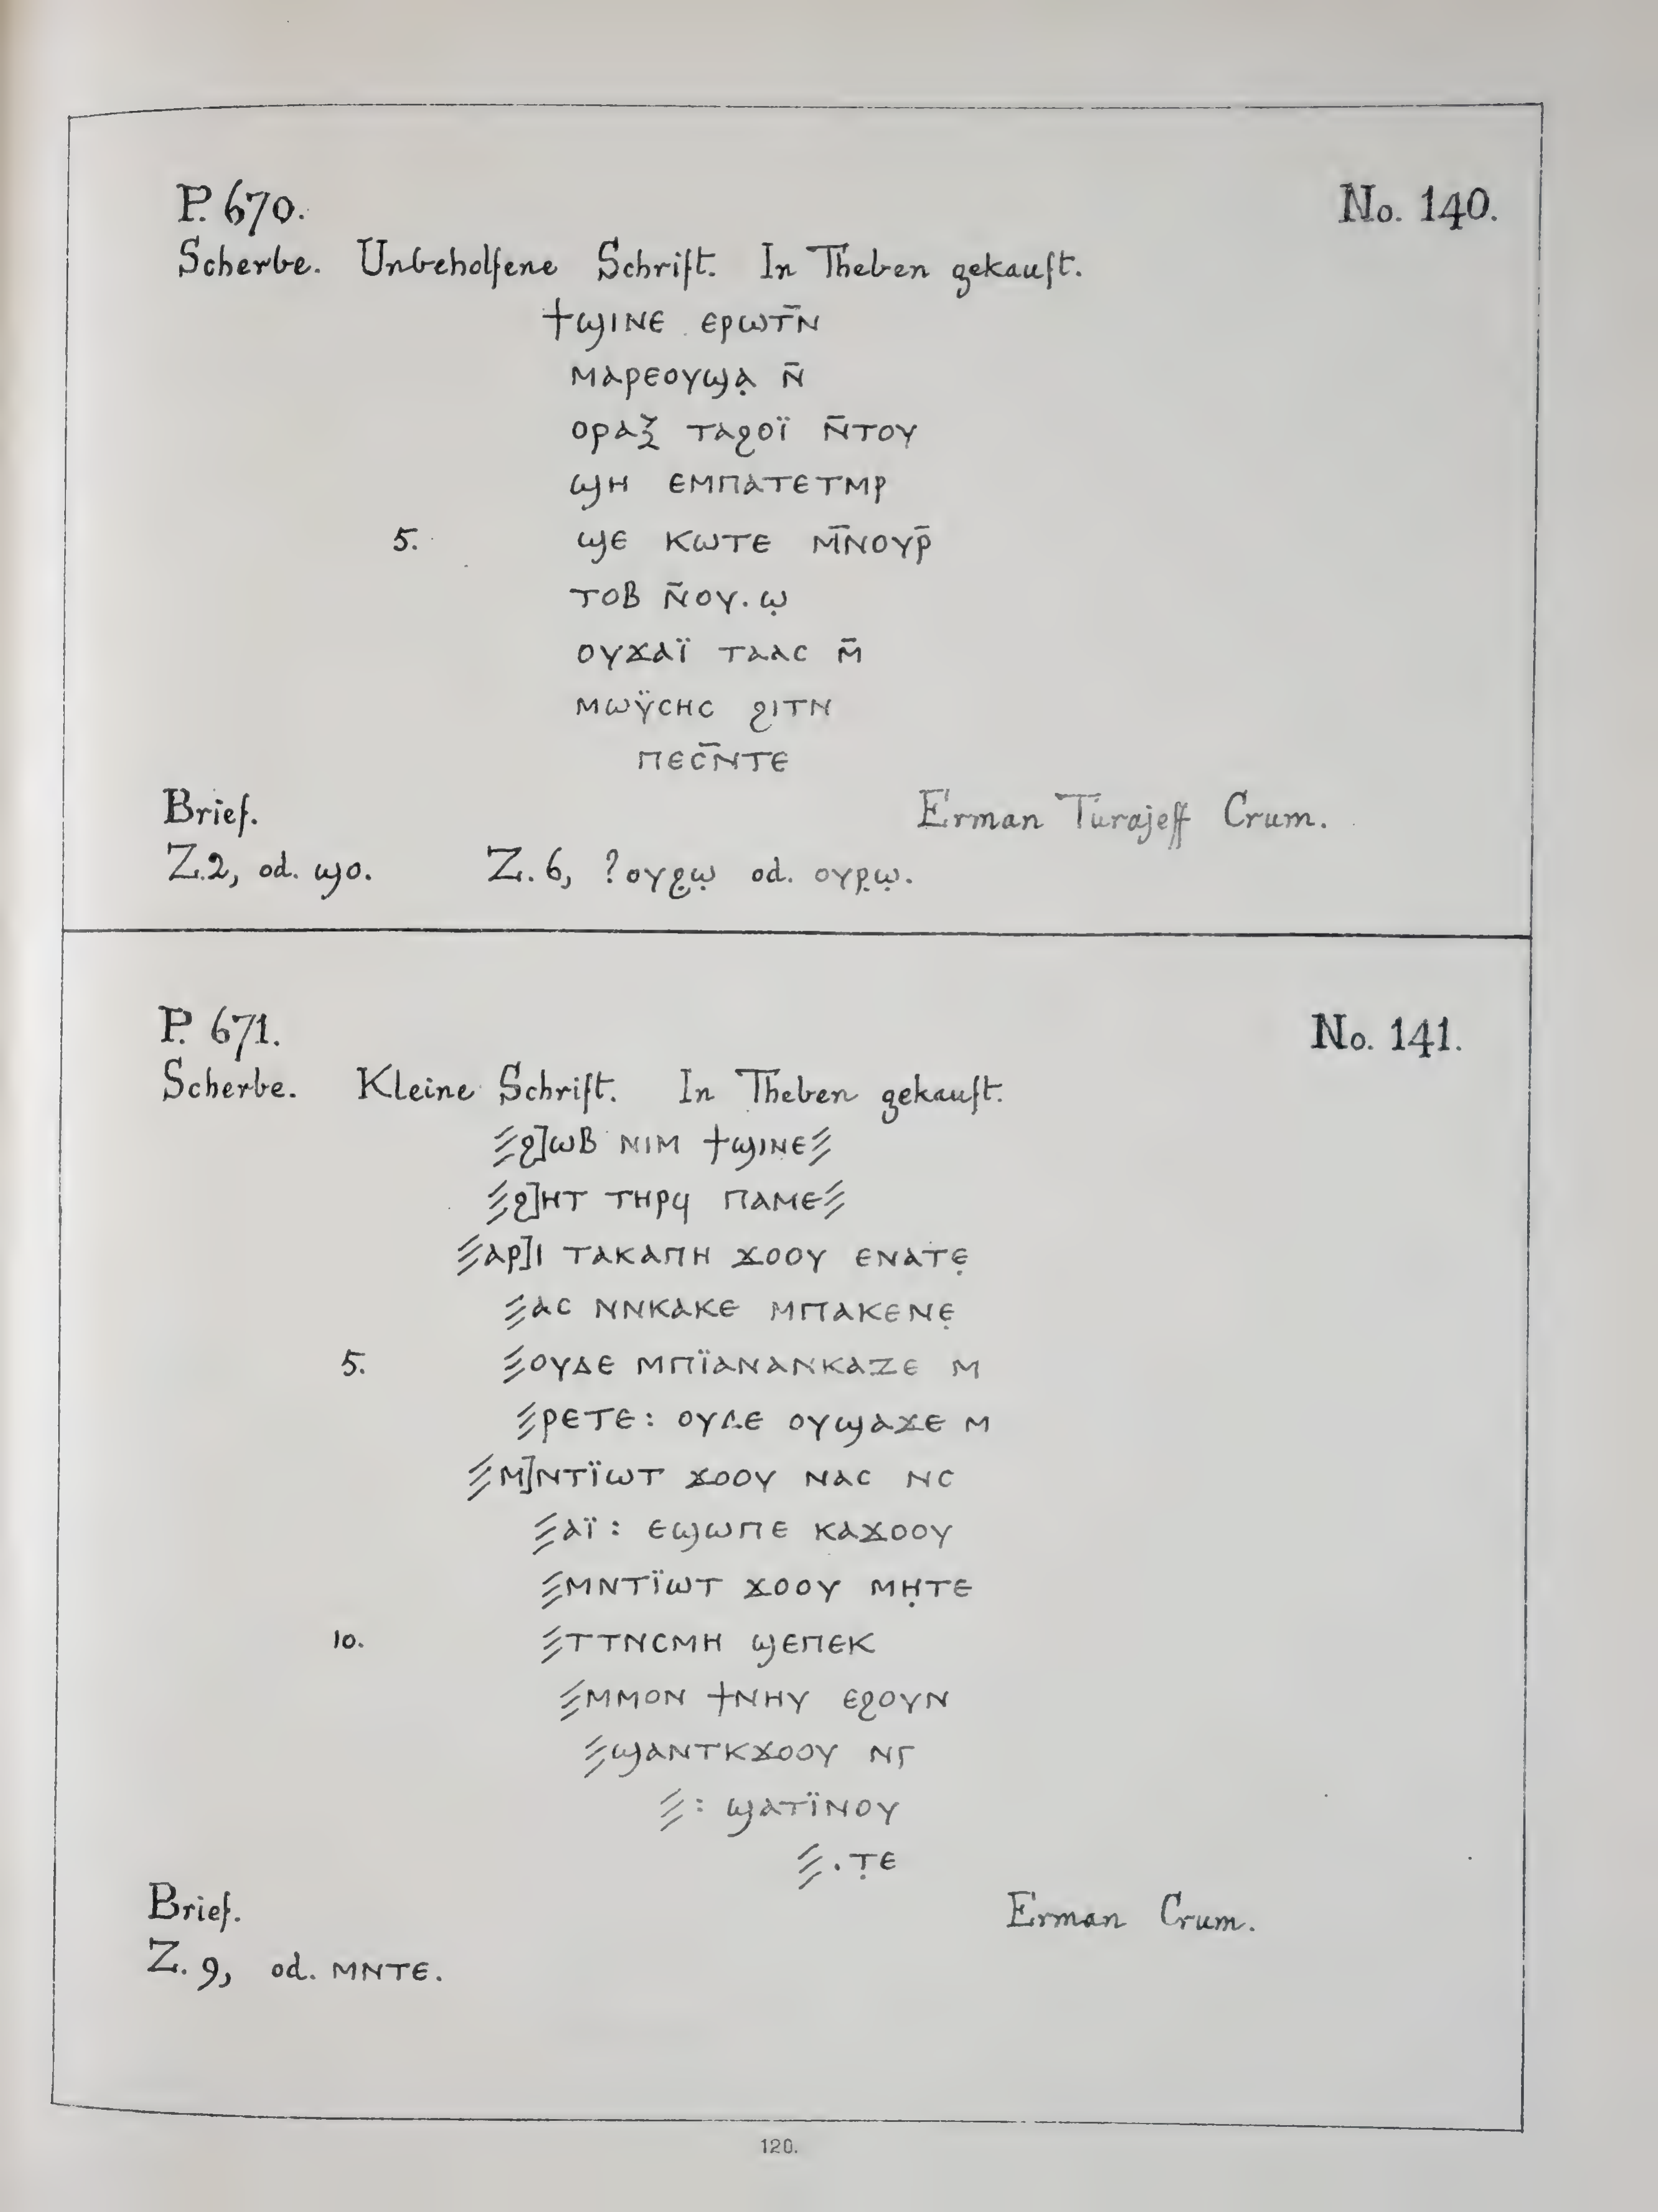 P. 670. No. 140.
Scherbe. Unbeholfene Schrift. In Theben gekauft.
ϯϣⲓⲛⲉ ⲉⲣⲱⲧ̄ⲛ
ⲙⲁⲣⲉⲟⲩϣⲁ̣ ⲛ̄
ⲟⲣⲁⲝ ⲧⲁϩⲟⲓ̈ ⲛ̄ⲧⲟⲩ
ϣⲏ ⲉⲙⲡⲁⲧⲉⲧⲙⲣ
5. ϣⲉ ⲕⲱⲧⲉ ⲙ̄ⲛⲟⲩⲣ̄
ⲧⲟⲃ ⲛ̄ⲟⲩ.ⲱ̣
ⲟⲩϫⲁⲓ̈ ⲧⲁⲁⲥ ⲙ̄
ⲙⲱⲩ̈ⲥⲏⲥ ϩⲓⲧⲛ
ⲡⲉⲥ̄ⲛⲧⲉ
Brief. Erman Turajeff Crum.
Z.2, od. ϣⲟ. Z. 6, ?ⲟⲩϩ̣ⲱ̣ od. ⲟⲩⲣ̣ⲱ̣.
P. 671. No. 141.
Scherbe. Kleine Schrift. In Theben gekauft.
⫽ϩ]ⲱⲃ ⲛⲓⲙ ϯϣⲓⲛⲉ⫽
⫽ϩ]ⲏⲧ ⲧⲏⲣϥ ⲡⲁⲙⲉ⫽
⫽ⲁⲣ]ⲓ ⲧⲁⲕⲁⲡⲏ ϫⲟⲟⲩ ⲉⲛⲁⲧⲉ̣
⫽ⲁⲥ ⲛⲛⲕⲁⲕⲉ ⲙⲡⲁⲕⲉⲛⲉ̣
5. ⫽ⲟⲩⲇⲉ ⲙⲡⲓ̈ⲁⲛⲁⲛⲕⲁⲍⲉ ⲙ
⫽ⲣⲉⲧⲉ: ⲟⲩⲇⲉ ⲟⲩϣⲁϫⲉ ⲙ
⫽ⲙ]ⲛⲧⲓ̈ⲱⲧ ϫⲟⲟⲩ ⲛⲁⲥ ⲛⲥ
⫽ⲁⲓ̈: ⲉϣⲱⲡⲉ ⲕⲁϫⲟⲟⲩ
⫽ⲙⲛⲧⲓ̈ⲱⲧ ϫⲟⲟⲩ ⲙⲏ̣ⲧⲉ
10. ⫽ⲧⲧⲛⲥⲙⲏ ϣⲉⲡⲉⲕ
⫽ⲙⲙⲟⲛ ϯⲛⲏⲩ ⲉϩⲟⲩⲛ
⫽ϣⲁⲛⲧⲕϫⲟⲟⲩ ⲛⲅ
⫽: ϣⲁⲧⲓ̈ⲛⲟⲩ
⫽.ⲧ̣ⲉ
Brief. Erman Crum.
Z. 9, od. ⲙⲛⲧⲉ.
120.